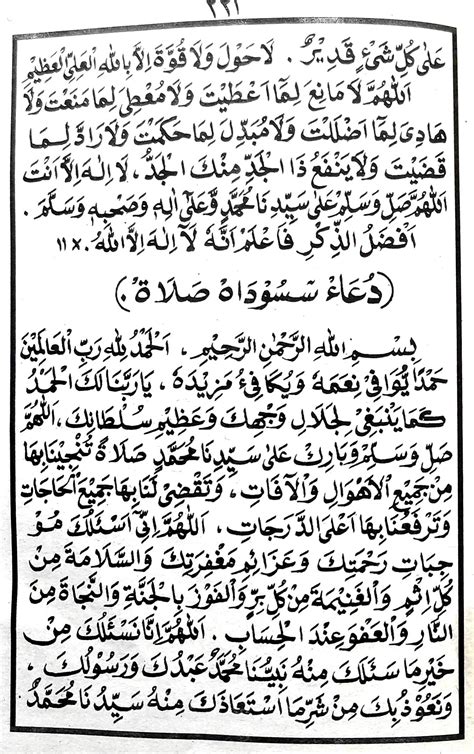 ٢٢١
عَلَى كُلِّ شَيْءٍ قَدِيْرٌ . لَا حَوْلَ وَلَا قُوَّةَ اِلَّا بِاللهِ الْعَلِيِّ الْعَظِيْمِ
اَللّٰهُمَّ لَا مَانِعَ لِمَا اَعْطَيْتَ وَلَا مُعْطِيَ لِمَا مَنَعْتَ وَلَا
هَادِيَ لِمَا اَضْلَلْتَ وَلَا مُبَدِّلَ لِمَا حَكَمْتَ وَلَا رَادَّ لِمَا
قَضَيْتَ وَلَا يَنْفَعُ ذَا الْجَدِّ مِنْكَ الْجَدُّ، لَا اِلٰهَ اِلَّا اَنْتَ
اَللّٰهُمَّ صَلِّ وَسَلِّمْ عَلَى سَيِّدِنَا مُحَمَّدٍ وَّعَلَى اٰلِهِ وَصَحْبِهِ وَسَلَّمَ .
اَفْضَلُ الذِّكْرِ فَاعْلَمْ اَنَّهُ لَا اِلٰهَ اِلَّا اللهُ . × ١١
(دُعَاءْ سَسُوْدَاهْ صَلَاةْ .)
بِسْمِ اللهِ الرَّحْمٰنِ الرَّحِيْمِ ، اَلْحَمْدُ لِلّٰهِ رَبِّ الْعَالَمِيْنَ
حَمْدًا يُّوَافِي نِعَمَهُ وَيُكَافِئُ مَزِيْدَهُ ، يَا رَبَّنَا لَكَ الْحَمْدُ
كَمَا يَنْبَغِي لِجَلَالِ وَجْهِكَ وَعَظِيْمِ سُلْطَانِكَ ، اَللّٰهُمَّ
صَلِّ وَسَلِّمْ وَبَارِكْ عَلَى سَيِّدِنَا مُحَمَّدٍ صَلَاةً تُنْجِيْنَا بِهَا
مِنْ جَمِيْعِ الْاَهْوَالِ وَالْاٰفَاتِ ، وَتَقْضِيْ لَنَا بِهَا جَمِيْعَ الْحَاجَاتِ
وَتَرْفَعُنَا بِهَا اَعْلَى الدَّرَجَاتِ . اَللّٰهُمَّ اِنِّيْ اَسْئَلُكَ مُوْ
جِبَاتِ رَحْمَتِكَ وَعَزَائِمَ مَغْفِرَتِكَ وَالسَّلَامَةَ مِنْ
كُلِّ اِثْمٍ وَالْغَنِيْمَةَ مِنْ كُلِّ بِرٍّ وَالْفَوْزَ بِالْجَنَّةِ وَالنَّجَاةَ مِنَ
النَّارِ وَالْعَفْوَ عِنْدَ الْحِسَابِ . اَللّٰهُمَّ اِنَّا نَسْئَلُكَ مِنْ
خَيْرِ مَا سَئَلَكَ مِنْهُ نَبِيُّنَا مُحَمَّدٌ عَبْدُكَ وَرَسُوْلُكَ ،
وَنَعُوْذُ بِكَ مِنْ شَرِّ مَا اسْتَعَاذَكَ مِنْهُ سَيِّدُنَا مُحَمَّدٌ